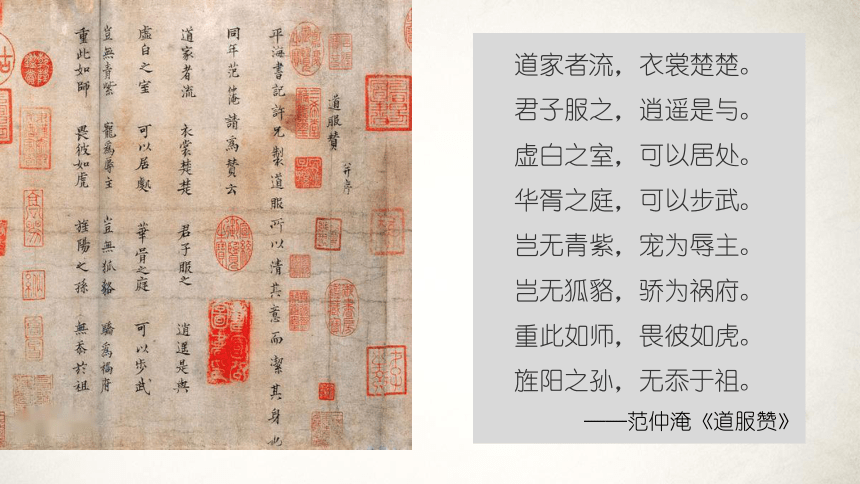 道服贊 并序
平海書記許兄製道服所以清其意而潔其身也
同年范仲淹請爲贊云
道家者流 衣裳楚楚 君子服之 逍遥是與
虛白之室 可以居處 華胥之庭 可以步武
豈無青紫 寵爲辱主 豈無狐貉 驕爲禍府
重此如師 畏彼如虎 旌陽之孫 無忝於祖
道家者流，衣裳楚楚。
君子服之，逍遥是与。
虚白之室，可以居处。
华胥之庭，可以步武。
岂无青紫，宠为辱主。
岂无狐貉，骄为祸府。
重此如师，畏彼如虎。
旌阳之孙，无忝于祖。
——范仲淹《道服赞》